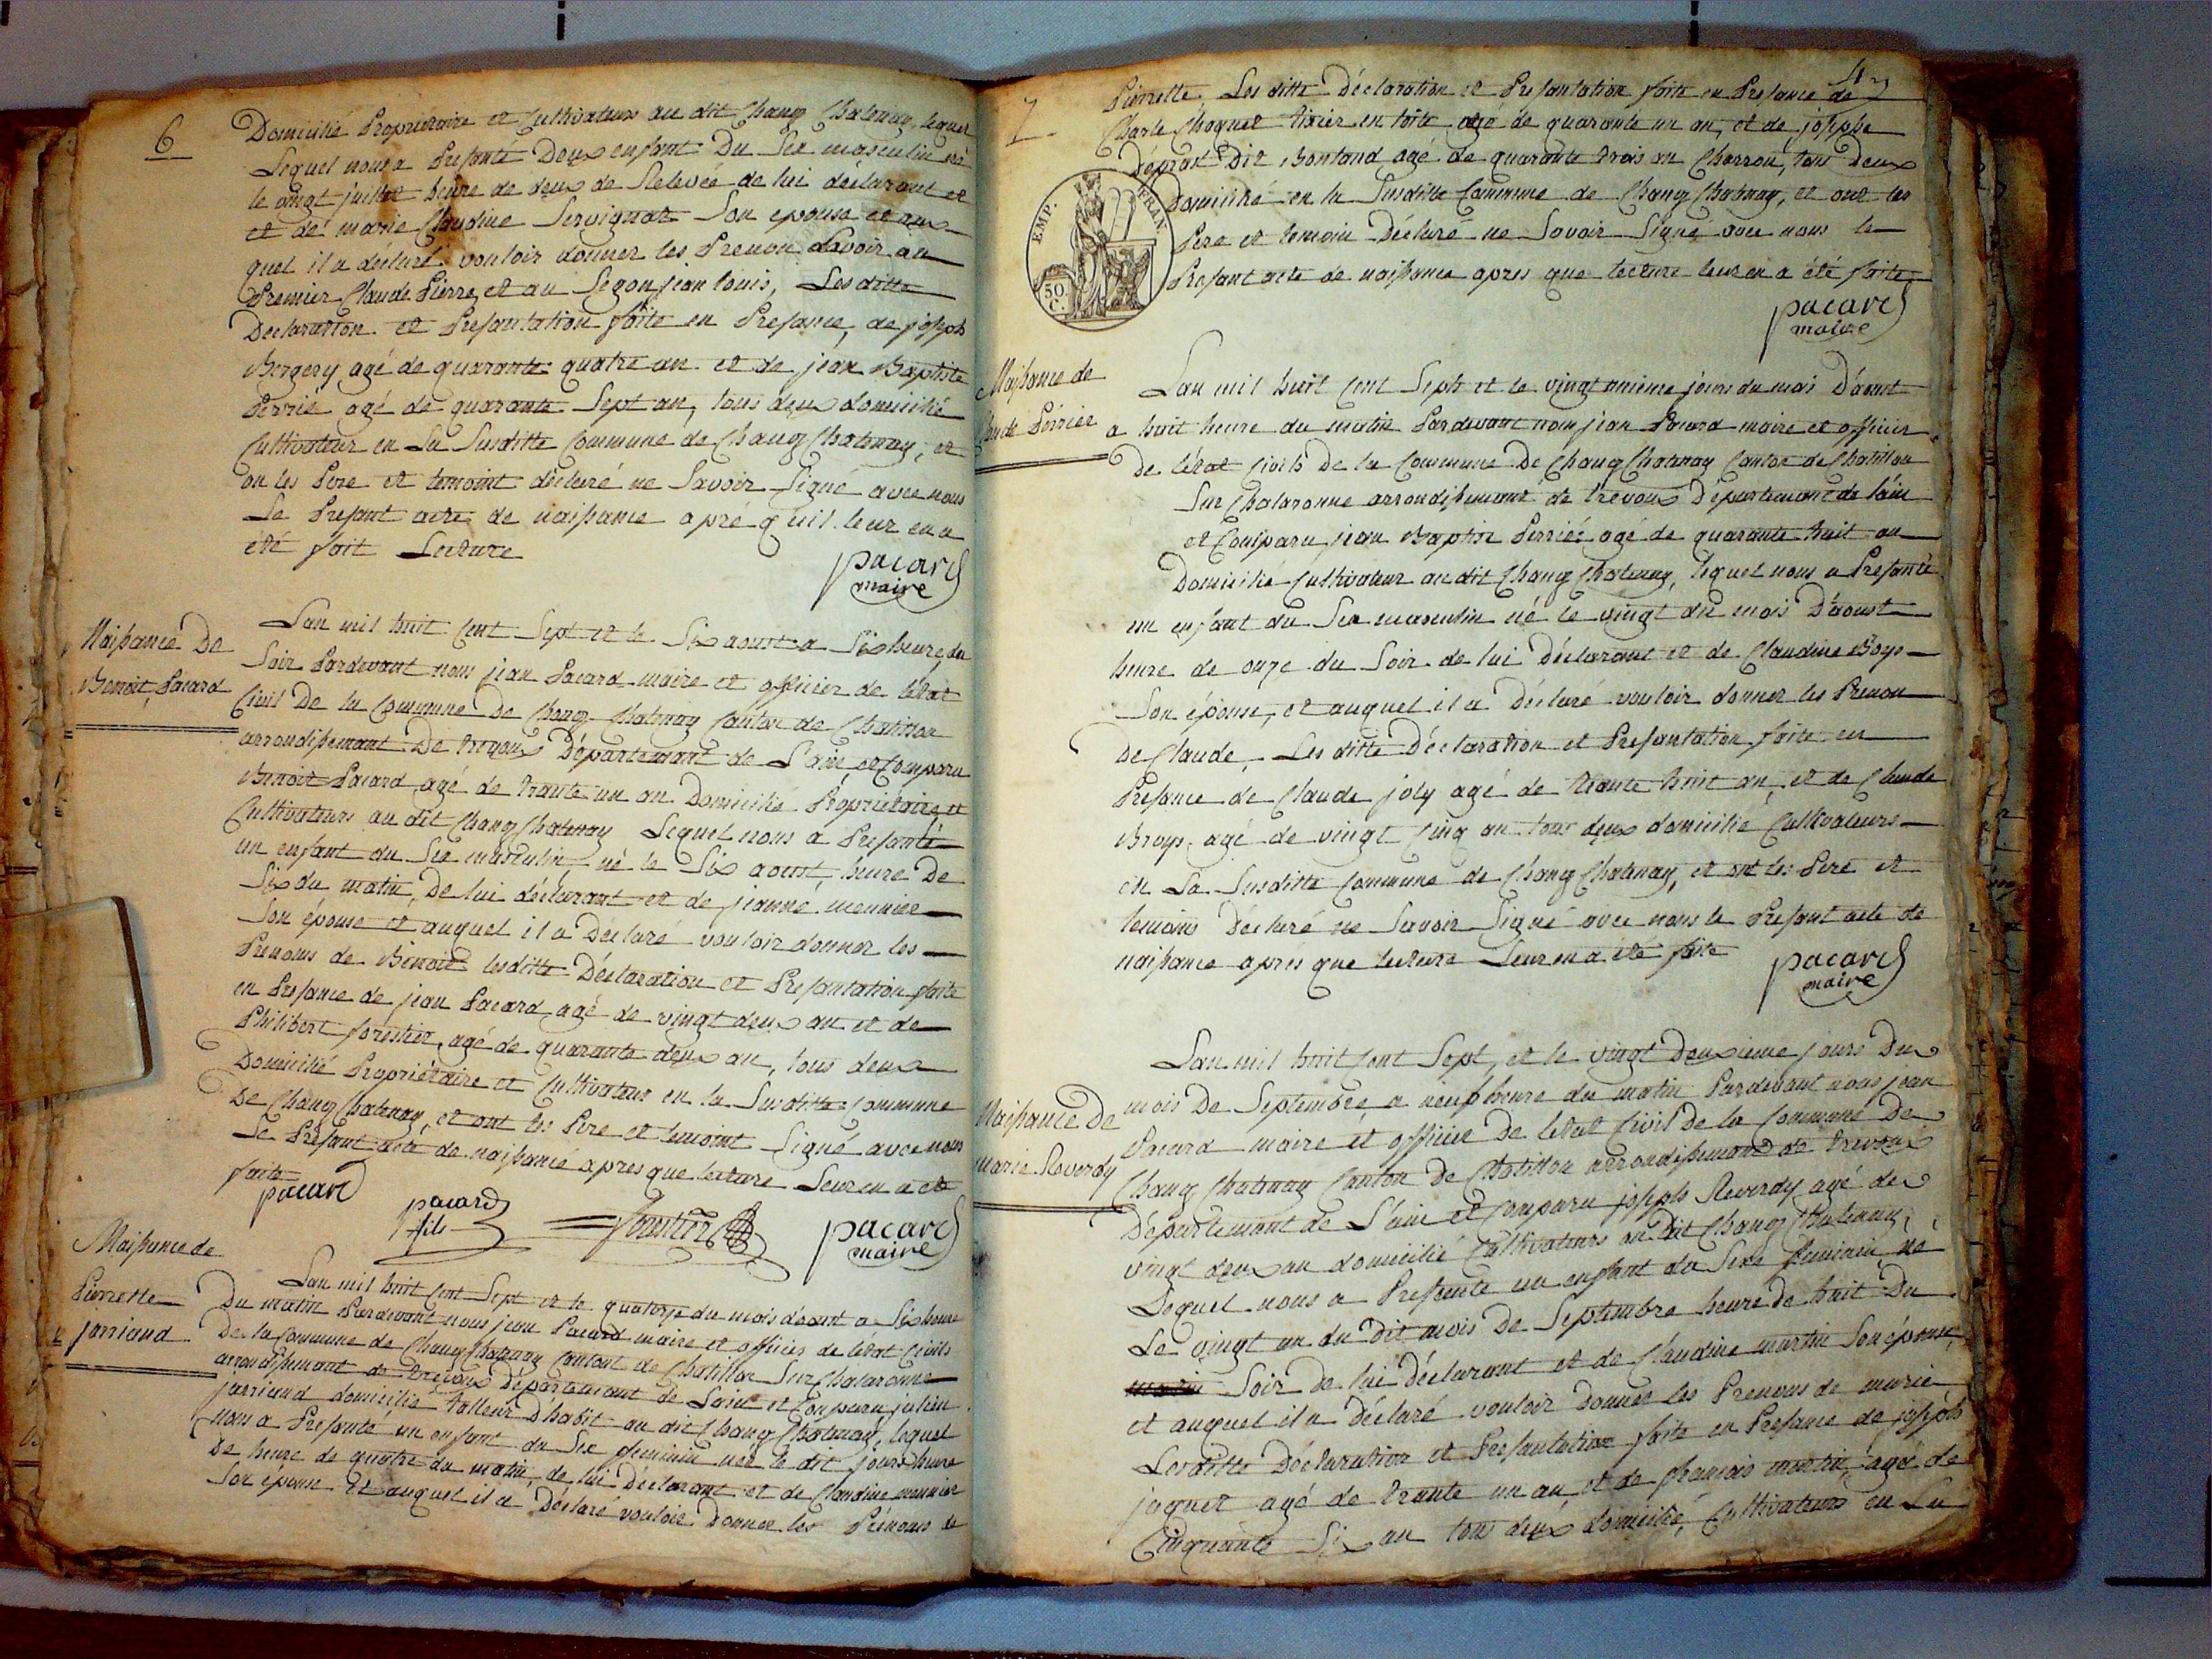 6
Domicilié Proprietaire et Cultivateur au dit Chang Chatenay, lequel
Lequel nous a Presanté Deux enfant Du Sex masculin né
le vingt juillet heure de deux de Relevée de lui déclarant et
et de marie Claudine Servignat Son epouse et au
quel il a déclaré vouloir donner les Prenon Savoir au
Premier Claude Pierre et au Segon jean louis, Les ditte
Declaration et Presantation faite en Presance, de joseph
Bergery agé de quarante quatre an et de jean Baptiste
Perrié agé de quarante Sept an, tous deux domicilié
Cultivateur en La Susditte Commune de Chang Chatenay, et
on les Pere et temoint déclaré ne Savoir Signé avec nous
Le Presant acte de naissance apré quil leur en a
été fait Lecture
pacard
maire
Naissance De
Benoit Pacard
Lan mil huit Cent Sept et le Six aoust a Six heure du
Soir Pardevant nous jean Pacard maire et officier de létat
Civil De la Commune De Chang Chatenay Canton de Chatillon
arrondissemant De Trevoux Départemant de L'ain et Comparu
Benoit Pacard agé de trante un an Domicilié Propriétaire et
Cultivateurs au dit Chang Chatenay Lequel nous a Presanté
un enfant du Sex masculin né le Six aoust, heure De
Six du matin, De lui déclarant et de jeanne meunier
Son épouse et auquel il a Déclaré vouloir donner les
Prenoms de Benoit lesditte Déclaration et Presantation faite
en Presance de jean Pacard agé de vingt deux an et de
Philibert forestier, agé de quarante deux an, tous deux
Domicilié Propriétaire et Cultivateur en la Susditte Commune
De Chang Chatenay, et ont les Pere et temoint Signé avec nous
Le Presant acte de naissance apres que lecture Leur en a eté
faite
pacard
pacard
fils
pacard
maire
Naissance de
Pierrette
jarriaud
Lan mil huit Cent Sept et le quatorze du mois d'aout a Six heure
Du matin Pardevant nous jean Pacard maire et officier de létat Civils
De la Commune de Chang Chatenay Cantont de Chatillon Sur Chalaronne
arrondissemant de Trevoux Départemant de Lain et Comparu julien
jarriaud domicilié talleur D'habit au dit Chang Chatenay, lequel
nous a Presanté un enfant du Sex feminin née le dit jours heure
De heure de quatre du matin, de lui Déclarant et de Claudine meunier
Son épouse Et auquel il a Déclaré vouloir Donner les Prénoms de
7
4
Pierrette, Les ditte Déclaration et Presantation faite en Presance de
Charle Choquet tixier en toile agé de quarante un an, et de joseph
Dépras Dit Bontand agé de quarante trois an Charron, tous deux
Domicilié en la Susditte Commune de Chang Chatenay, et ont les
Pere et temoin Déclaré ne Savoir Signé avec nous le
Presant acte de naissance apres que lecture leur en a été faite
pacard
maire
EMP. FRAN.
50
C.
Naissance de
Claude Périer
Lan mil huit Cent Sept et le vingt unième jours du mois D'aout
a huit heure du matin Pardevant nous jean Pacard maire et officier
De létat Civils De la Commune De Chang Chatenay Canton de Chatillon
Sur Chalaronne arrondissemant de Trevoux Départemant de lain
et Comparu jean Baptiste Perrié agé de quarante huit an
Domicilié Cultivateur au dit Chang Chatenay, lequel nous a Presanté
un enfant du Sex masculin né le vingt du mois D'aoust
heure de onze du Soir de lui Déclarant et de Claudine Boys
Son épouse, et auquel il a Déclaré vouloir donner les Prenon
De Claude, Les ditte Déclaration et Presantation faite en
Presance de Claude joly agé de trante huit an, et de Claude
Broys agé de vingt Cinq an tous deux domicilié Cultivateurs
en La Susditte Commune de Chang Chatenay, et ont les Pere et
temoins Déclaré ne Savoir Signé avec nous le Presant acte de
naissance apres que lecture Leur en a été faite
pacard
maire
Naissance de
marie Reverdy
Lan mil huit Cent Sept, et le vingt Deuxieme jours Du
mois De Septembre a neuf heure du matin Pardevant nous jean
Pacard maire et officier De létat Civil de la Commune De
Chang Chatenay Canton De Chatillon arrondissemant de Trevoux
Départemant de L'ain et Comparu joseph Reverdy agé de
vingt deux an domicilié Cultivateurs au Dit Chang Chatenay,
Lequel nous a Presenté un enfant du Sexe feminin né
Le vingt un du Dit mois De Septembre heure de huit Du
matin Soir De lui Déclarant et de Claudine martin Son épouse,
et auquel il a Déclaré vouloir Donner les Prenoms de marie
Lesditte Déclaration et Presantation faite en Presance de joseph
jaquet agé de trante un an et de François martin, agé de
Cinquante Six an tous deux domicilié, Cultivateurs en La